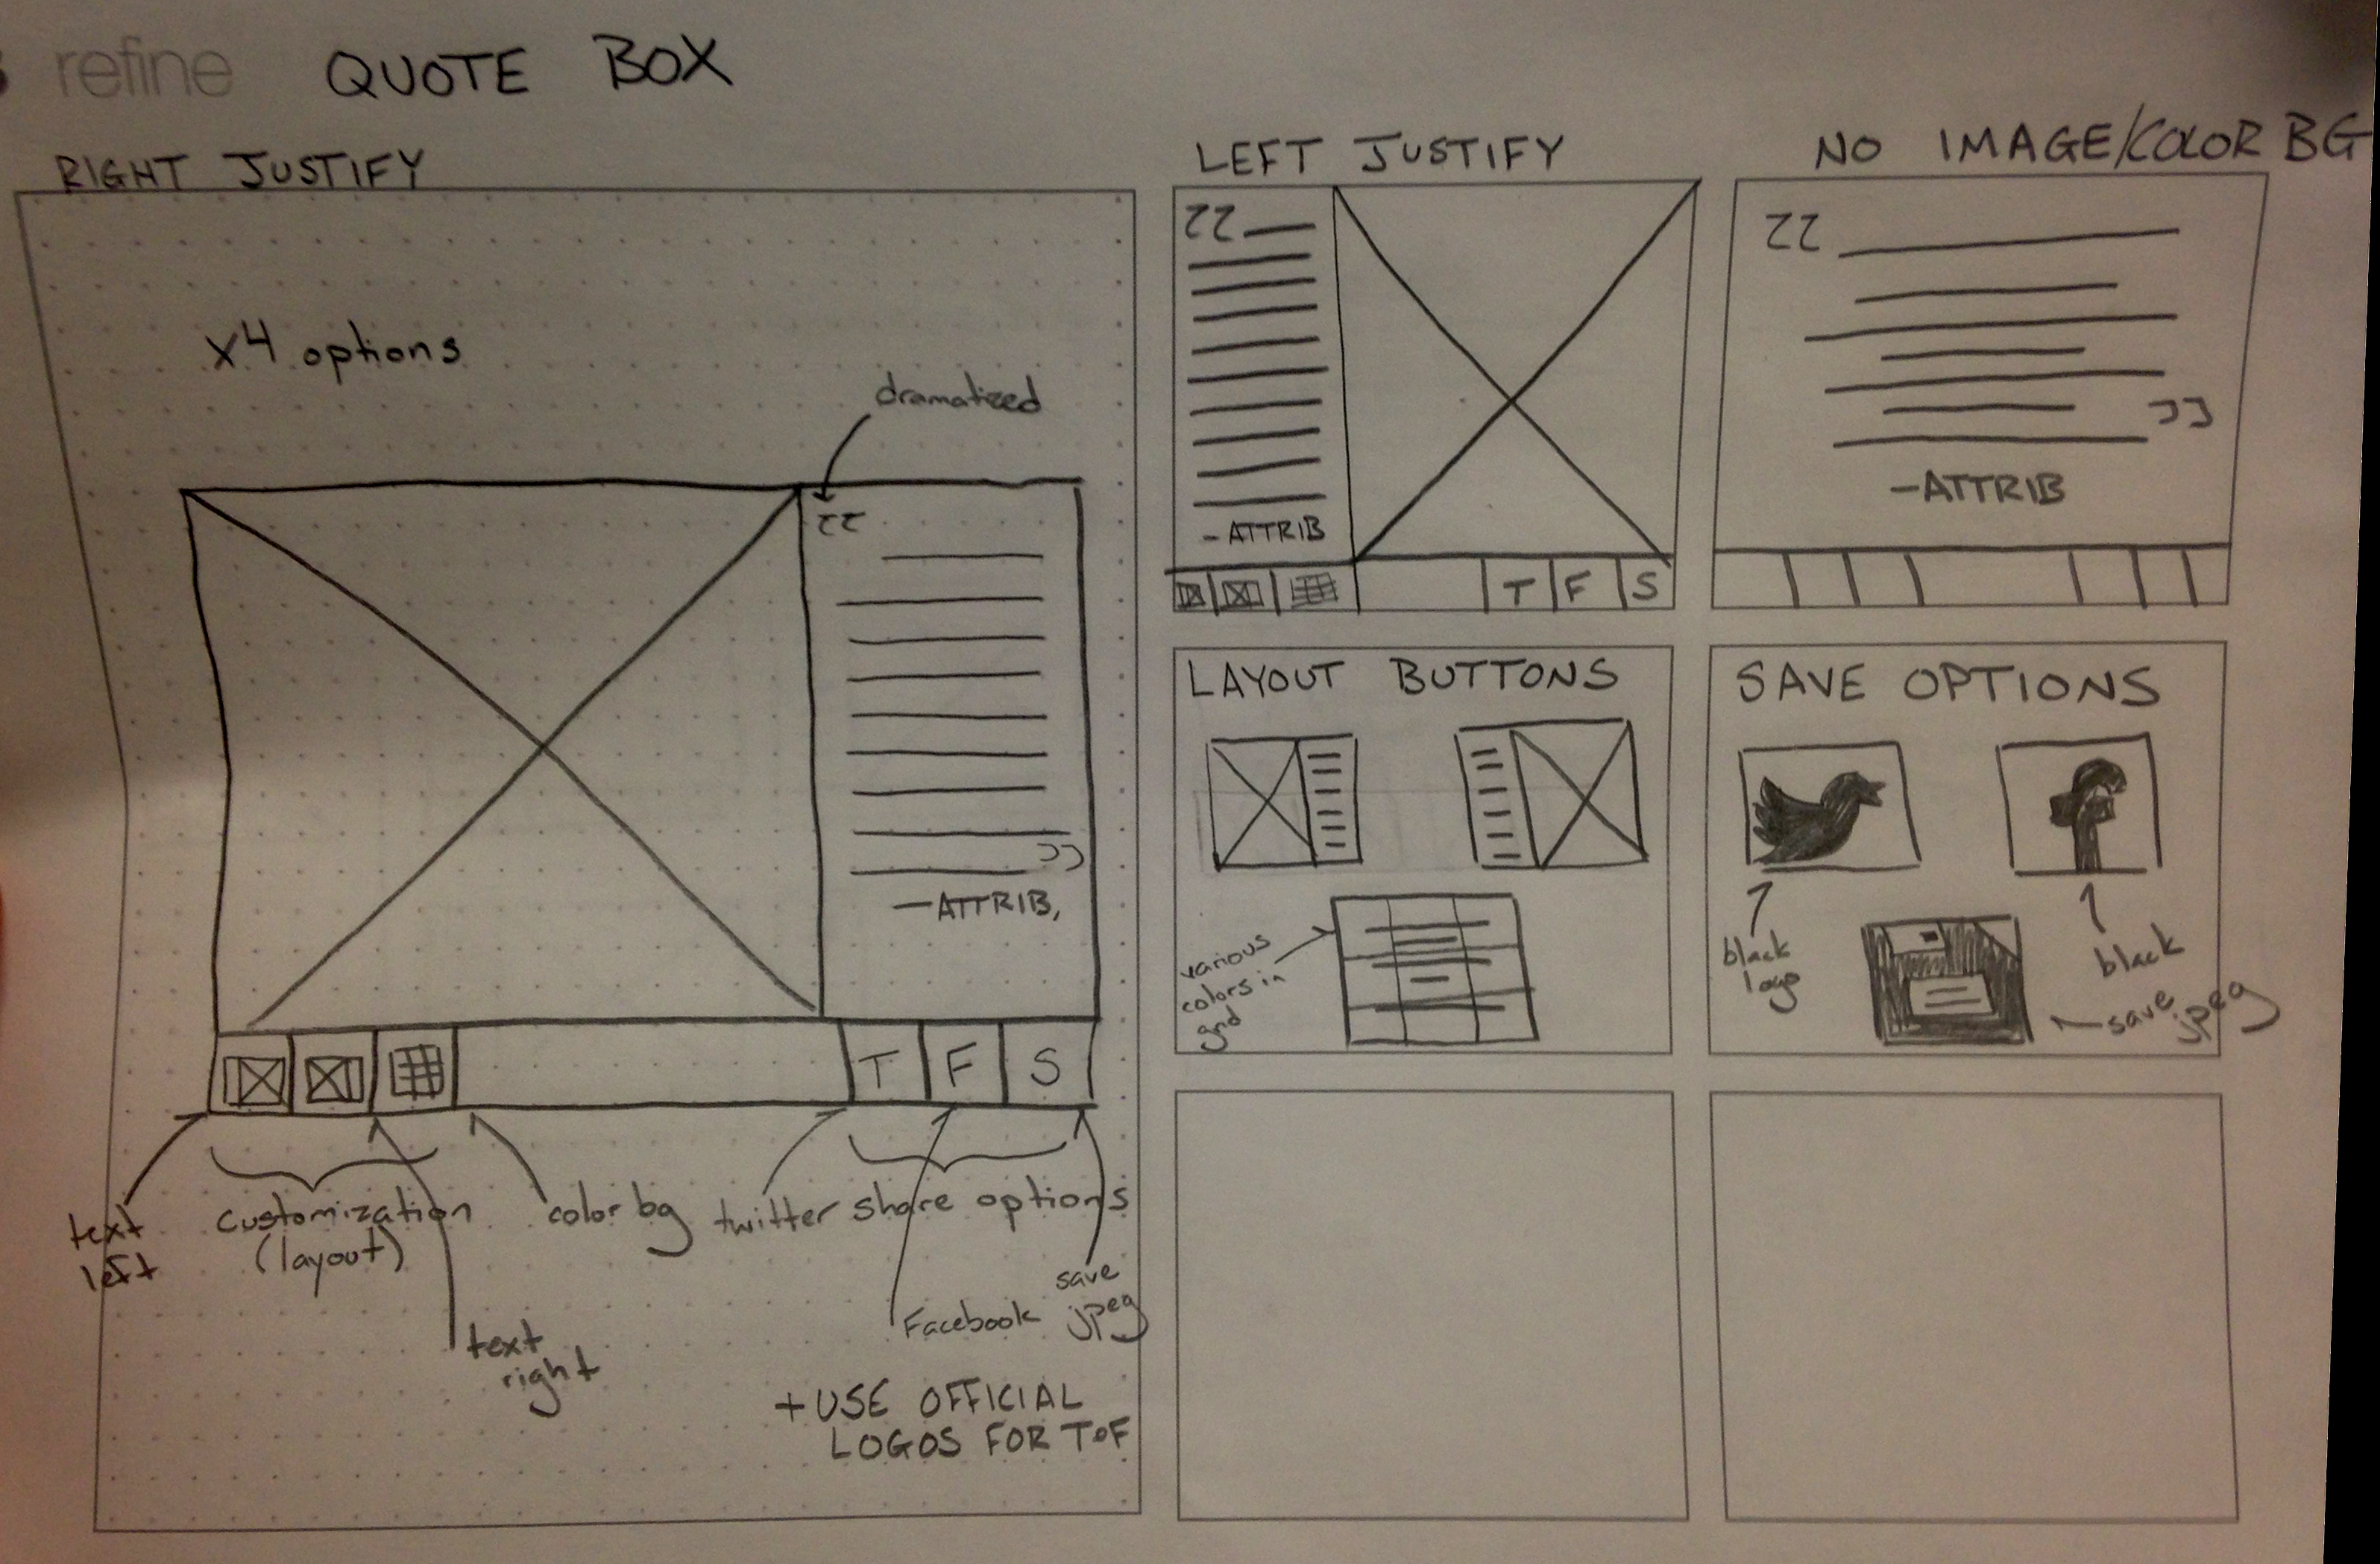 refine QUOTE BOX
RIGHT JUSTIFY
x4 options
dramatized
—ATTRIB,
T F S
text
left
customization
(layout)
text
right
color bg
twitter
share options
Facebook
save
jpeg
+USE OFFICIAL
LOGOS FOR T&F
LEFT JUSTIFY
-ATTRIB
T F S
NO IMAGE/COLOR BG
-ATTRIB
LAYOUT BUTTONS
various
colors in
grid
SAVE OPTIONS
f
black
logo
black
save jpeg